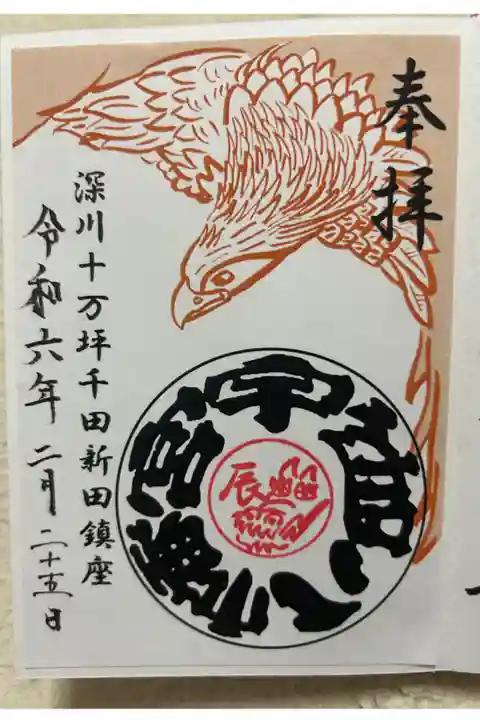 奉拝
深川十万坪千田新田鎮座
令和六年二月二十五日
宇迦八幡宮
辰